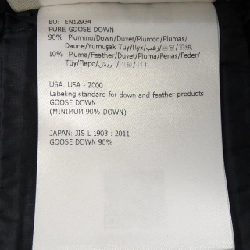 EU: EN12934
PURE GOOSE DOWN
90% Piumino/Down/Duvet/Plumon/Plumas/
Daune/Yumuşak Tüy/Пух/
10% Piuma/Feather/Duvet/Pluma/Penas/Feder/
Tüy/Перо/
USA: USA - 2000
Labeling standard for down and feather products
GOOSE DOWN
(MINIMUM 90% DOWN)
JAPAN: JIS L 1903 : 2011
GOOSE DOWN 90%